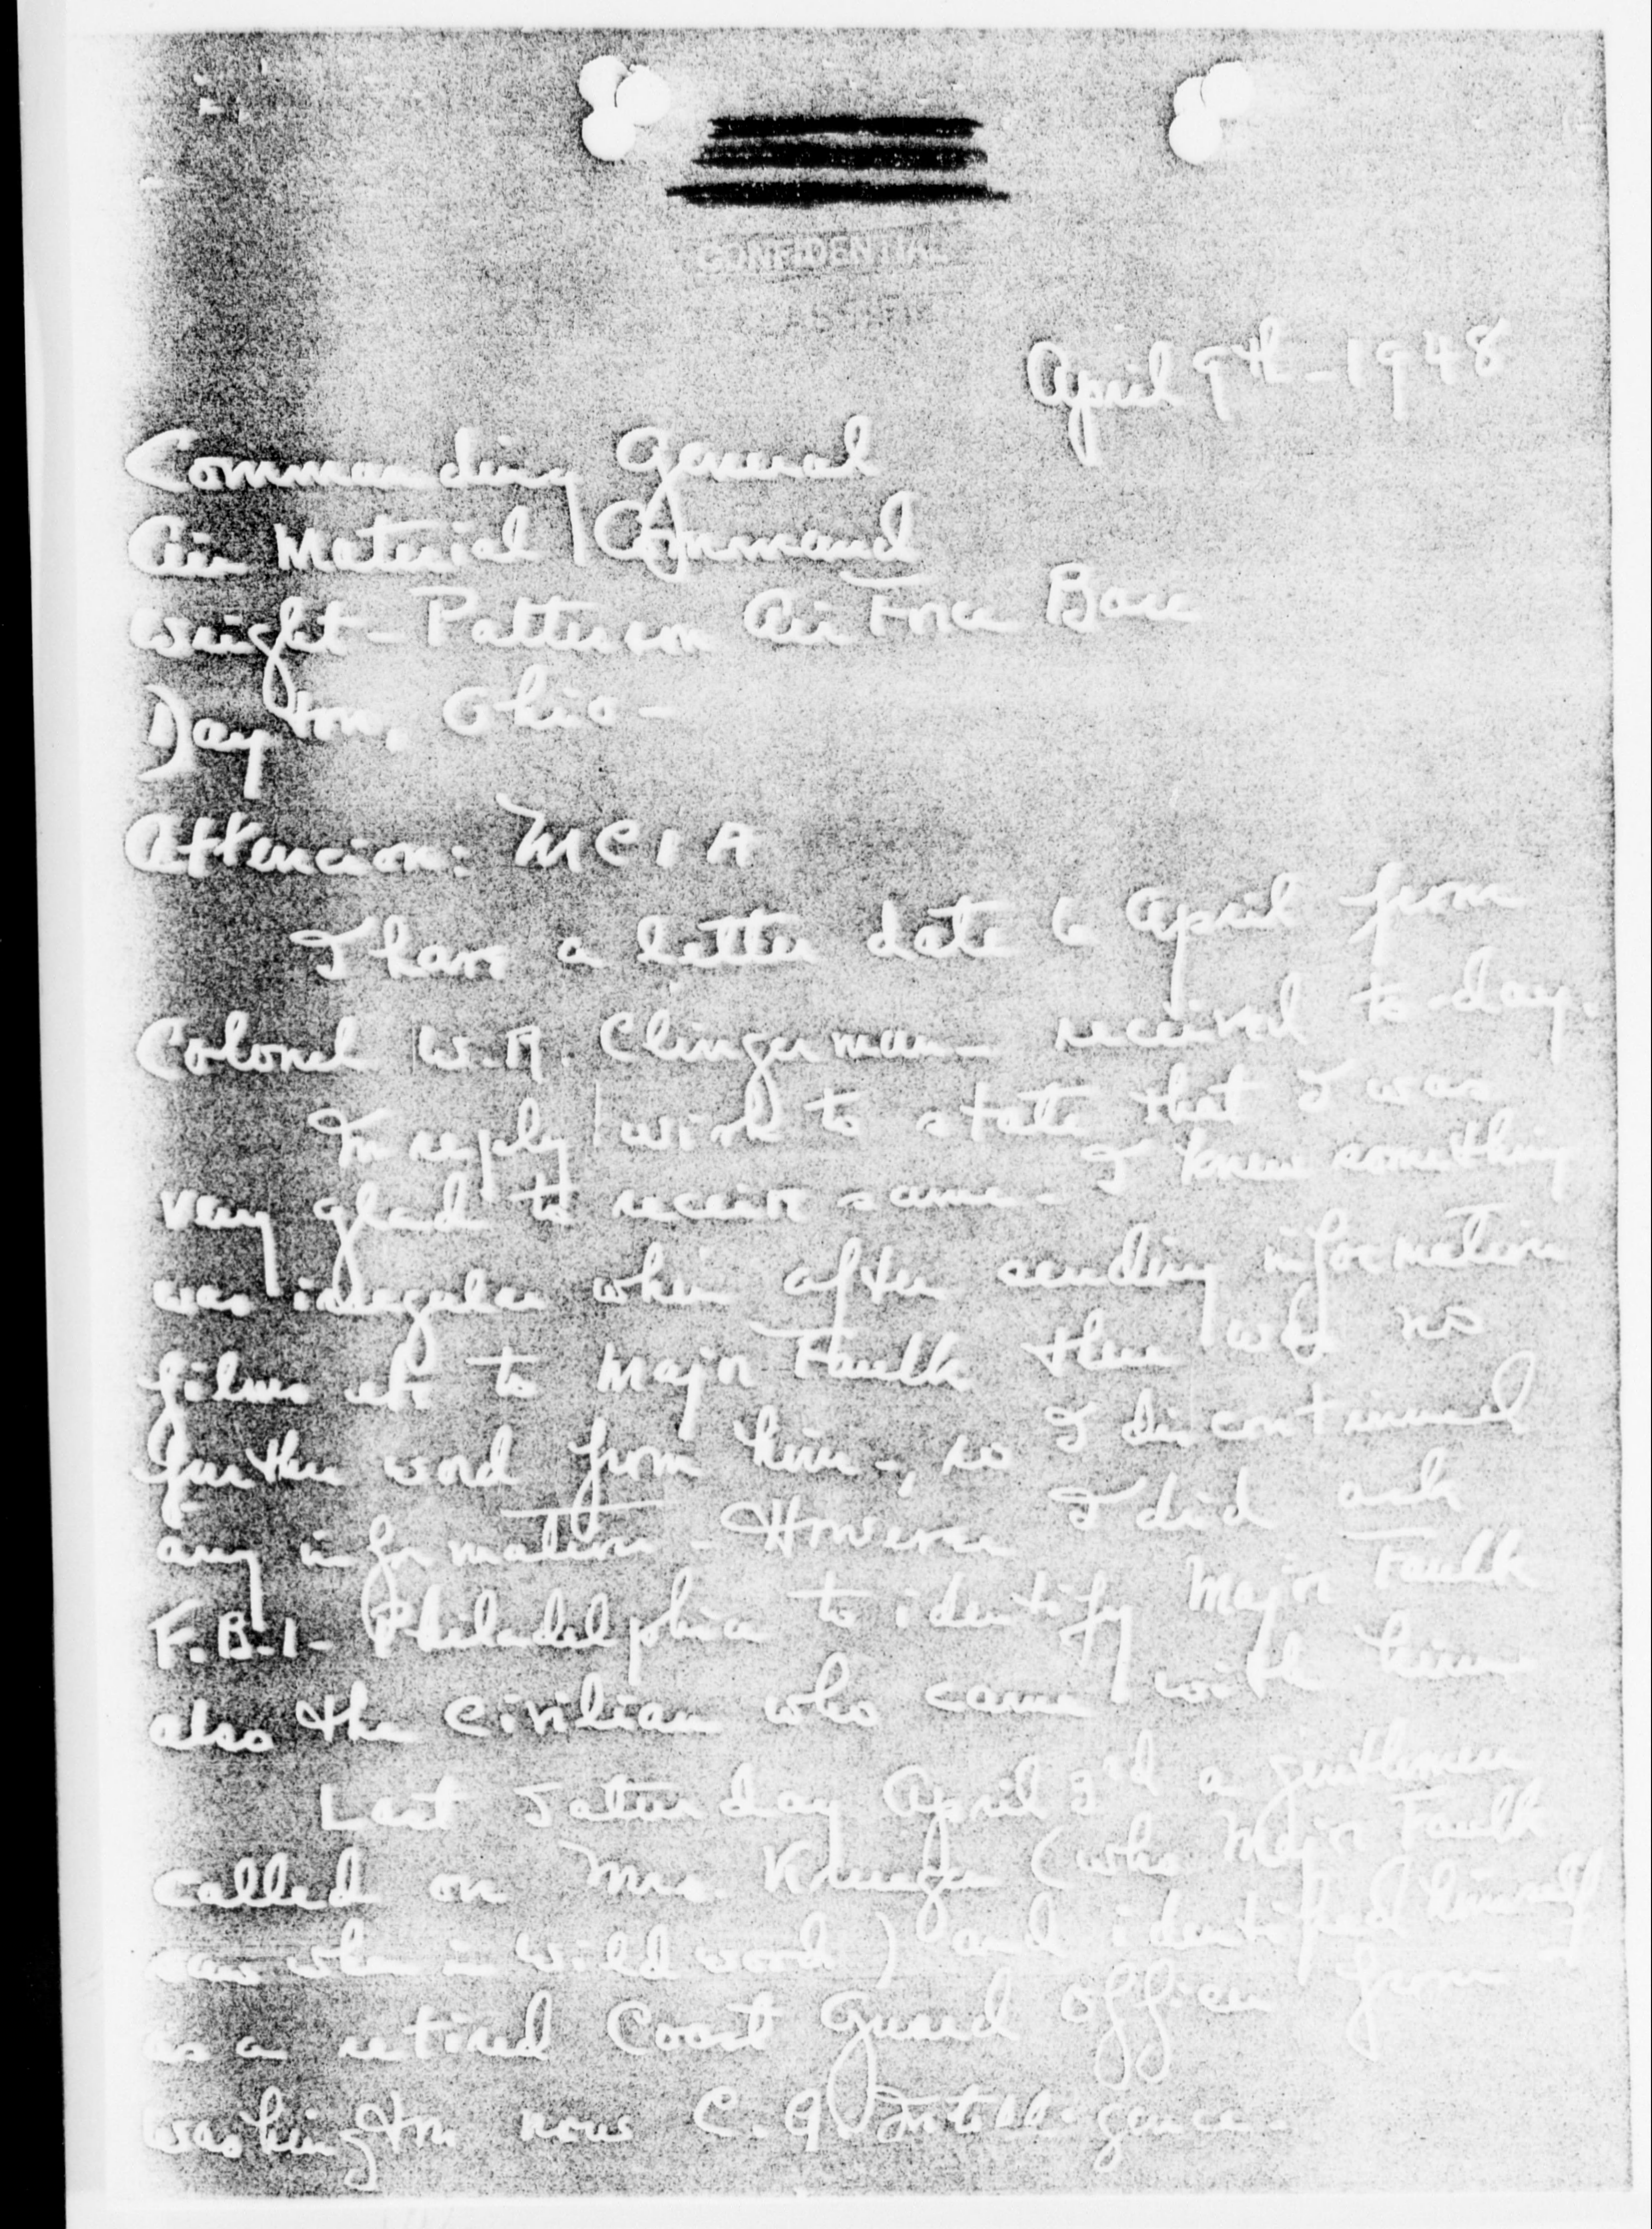 CONFIDENTIAL
April 9th - 1948
Commanding General
Air Material Command
Wright - Patterson Air Force Base
Dayton, Ohio -
Attencion: MCIA
I have a letter date 6 April from
Colonel W.R. Clingerman received to-day.
In reply wish to state that I was
very glad to receive same - I knew something
was irregular when after sending information
films etc to Major Faulk there was no
further word from him -, so I discontinued
any information - However I did ask
F.B.I - Philadelphia to identify Major Faulk
also the civilian who came with him
Last Saturday April 3rd a gentleman
called on Mrs Krueger (who Major Faulk
saw when in Wildwood) and identified himself
as a retired Coast Guard officer from
Washington now C.G. Intelligence -